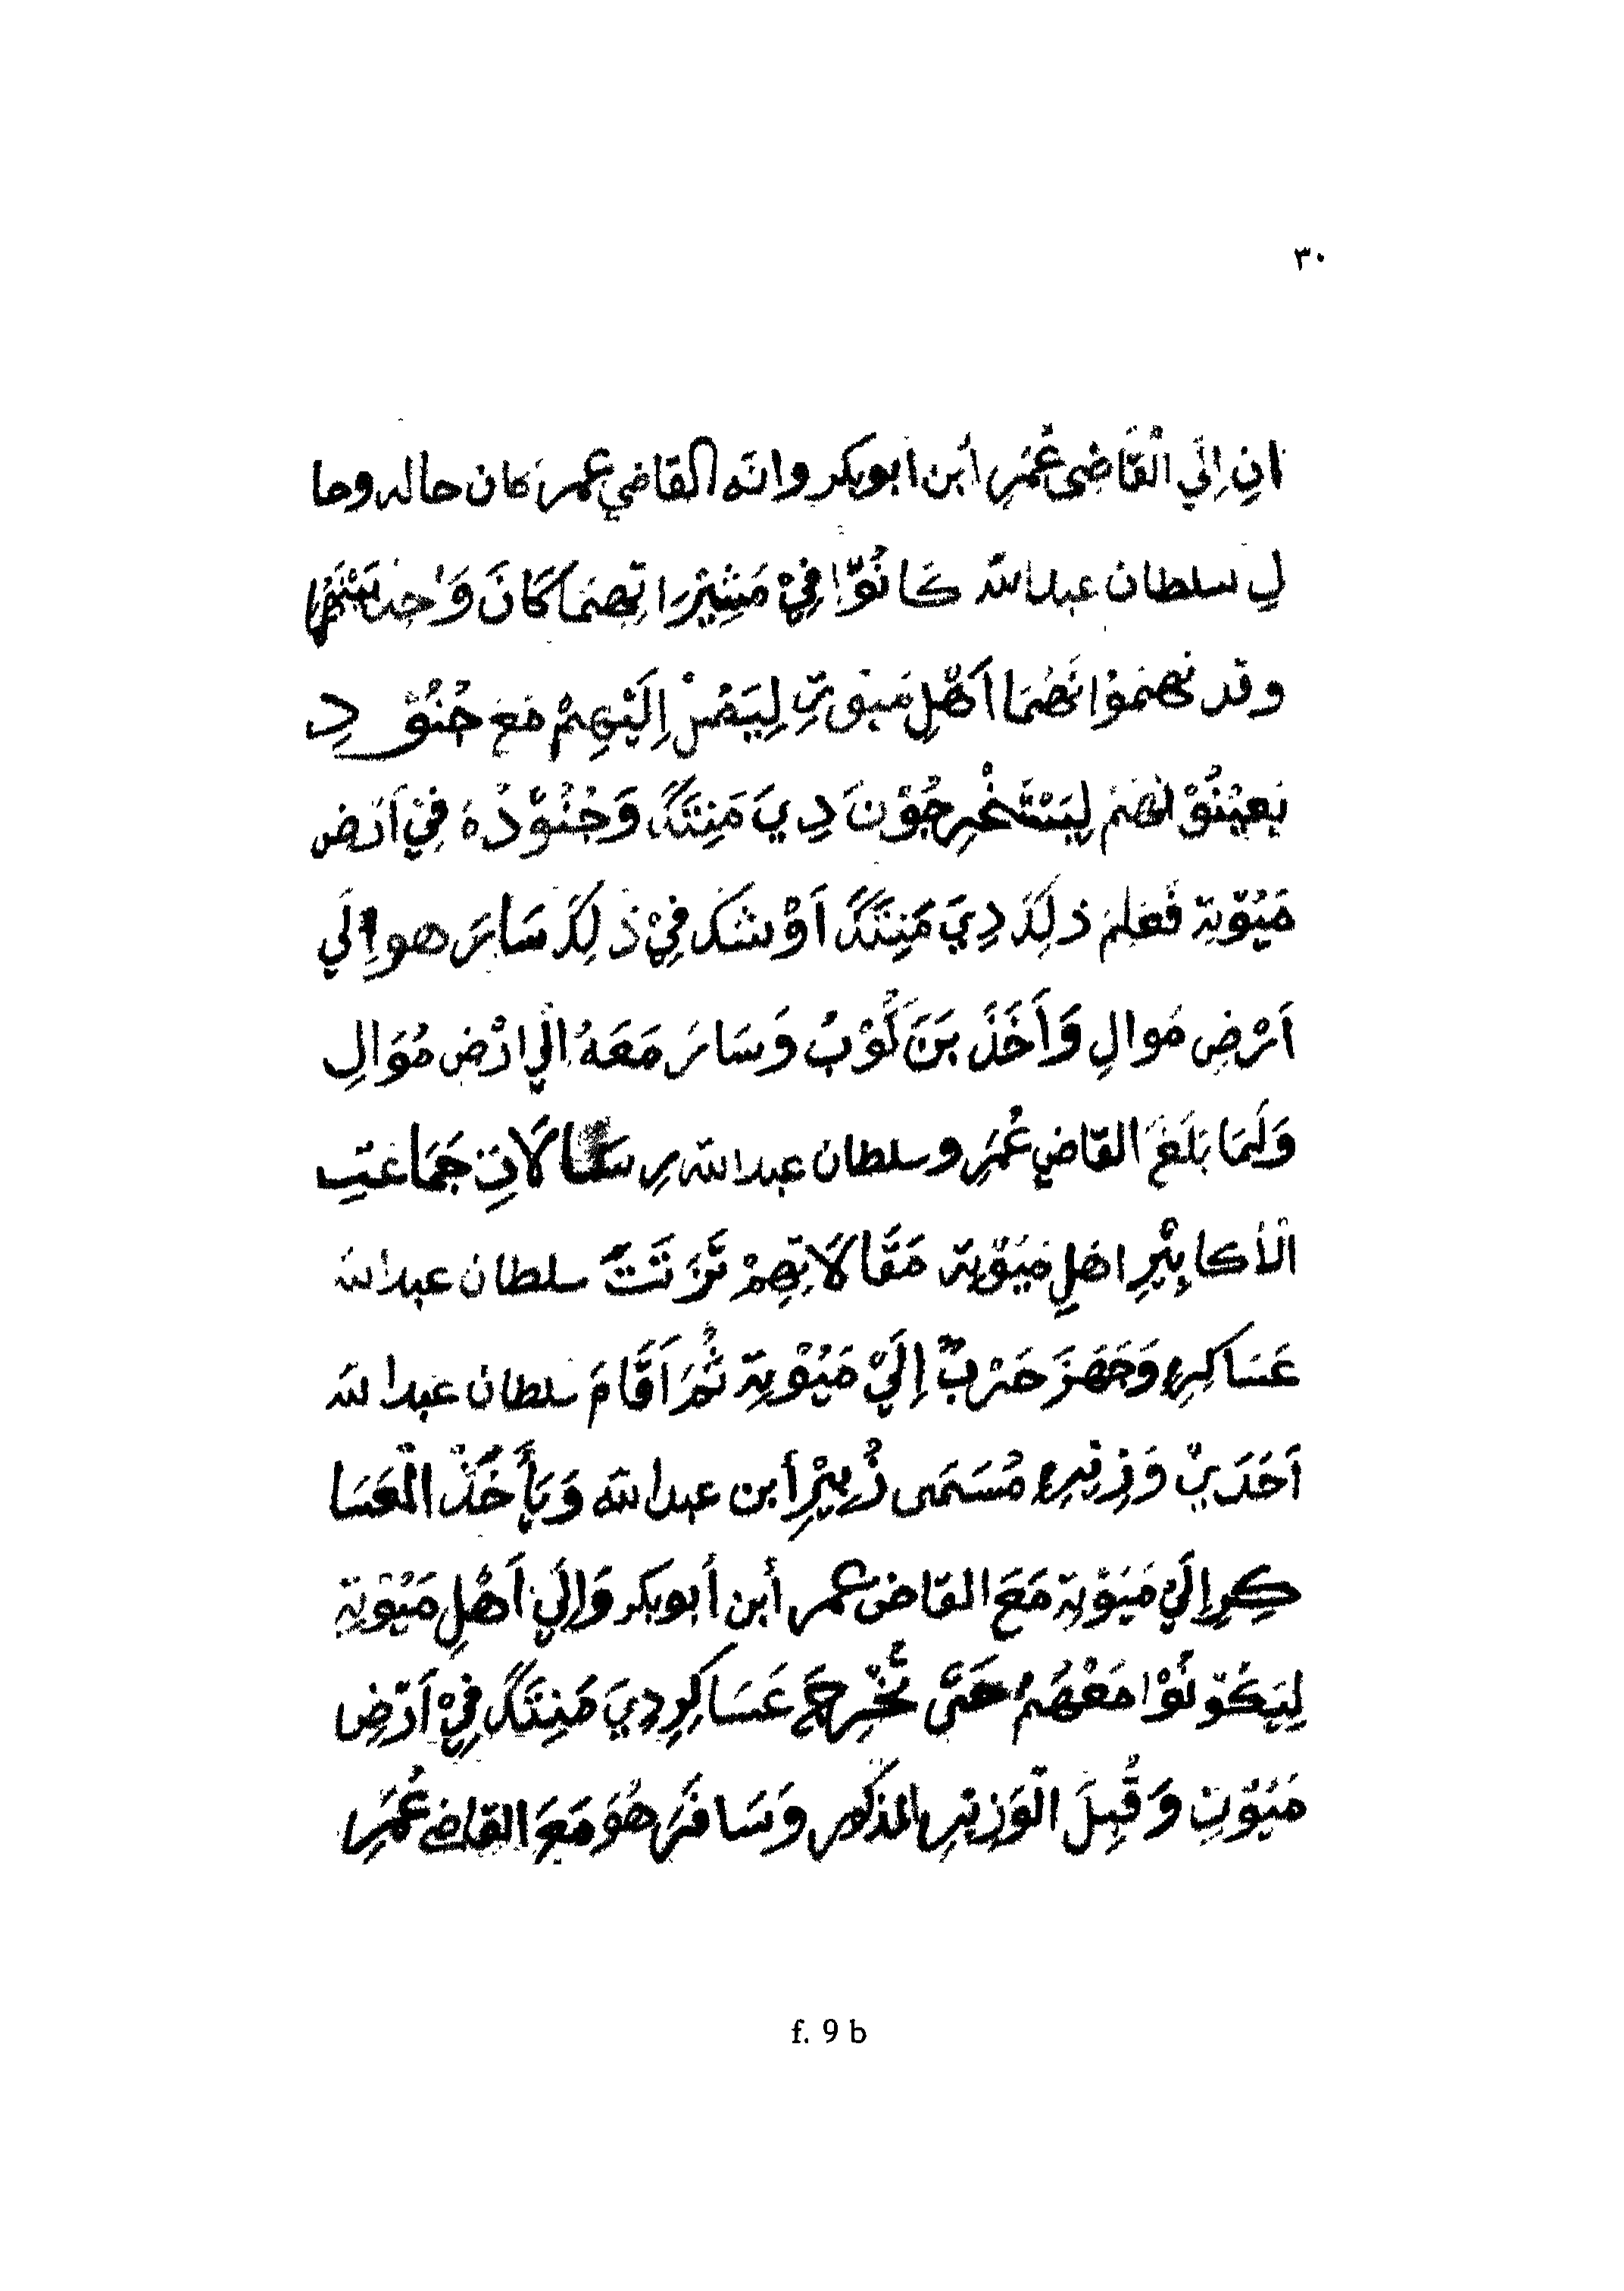 ٣٠
انِ اِلَي الْقَاضِى عُمَرِ أبن أبوبكر وانَه القاضي عمر كان حاله وحا
لِ سلطان عبدالله كَانُوّا فِيْ مَشِيْرَاتِهِمَا كَانَ وَاحِد
وقد نهموا نَهُمَا اَهْلِ مَيُوتِ لِيَمُرْ اِلَيْهِمْ مَعَ جُنُوْدِ
يَعِيْنُوْ لَهُمْ لِيَسْتَخْرِجُوْنَ دِيَ مَنِتَكَ وَجُنُوّدُهُ فِيْ اَرَضِ
مَيُوّتِة فَعَلِمَ ذلِكَ دِيَ مَنِتَكَ اَوْشَكَ فِيْ ذلِكَ سَارَ هو اِلَي
اَرْضِ مَوالِ وَاَخَذَ بَنَ كُوْبُ وَسَارَ مَعَهُ اِلَي ارْضِ مُوَالِ
وَلَمَا بَلَغَ القاضي عُمَرِ وسلطان عبدالله رِسَالَاتِ جَمَاعَتِ
الْأكَابِيْرِ اهلِ مَيُوّتة مَقَالَاتِهِمْ تَرَتَتَ سلطان عبدالله
عَسَاكِرِهِ وَجَهَزَ حَرْبٌ اِلَيْ مَيُوْتِة ثُمَ اَقَامَ سلطان عبدالله
اَحَدَيْ وَزِيرِهِ مُسَمَى زُبِيْرِ أبن عبدالله وَيَأخَذْ الْعَسَا
كِرِ اِلَي مَيَوْتِة مَعَ القاض عمر أبن أبوبكر وَالِيَ اَهْلِ مَيُوْتِة
لِيَكُوّنُوْا مَعْهُمُ حَتَّى تُخْرِجَ عَسَاكِرِ دِيَ مَنِتَكَ فِيْ اَرْضِ
مَيُوّتِ وَقُبِلَ الْوَزِيرِ المذكور وَسَافَرَ هُوَ مَعَ القاضي عُمَرِ
f. 9 b